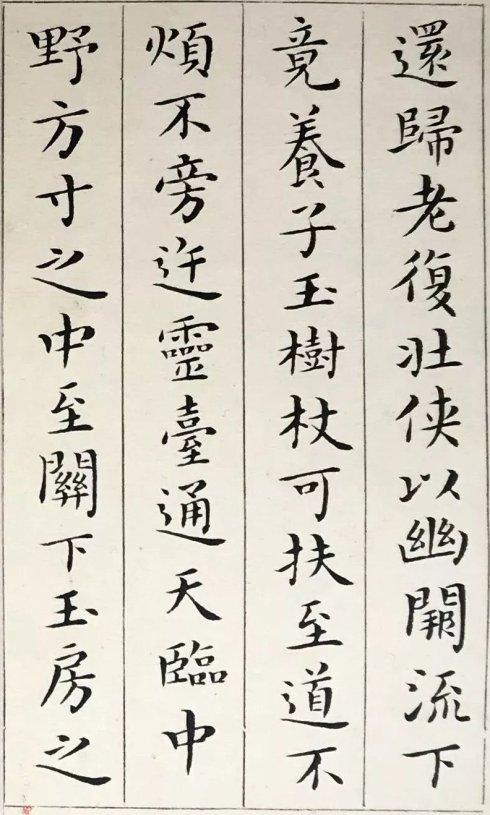 還歸老復壯俠以幽闕流下
竟養子玉樹杖可扶至道不
煩不旁迕靈臺通天臨中
野方寸之中至關下玉房之